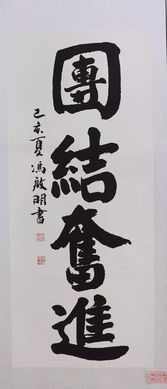 團結奮進
己亥夏馮啟明書